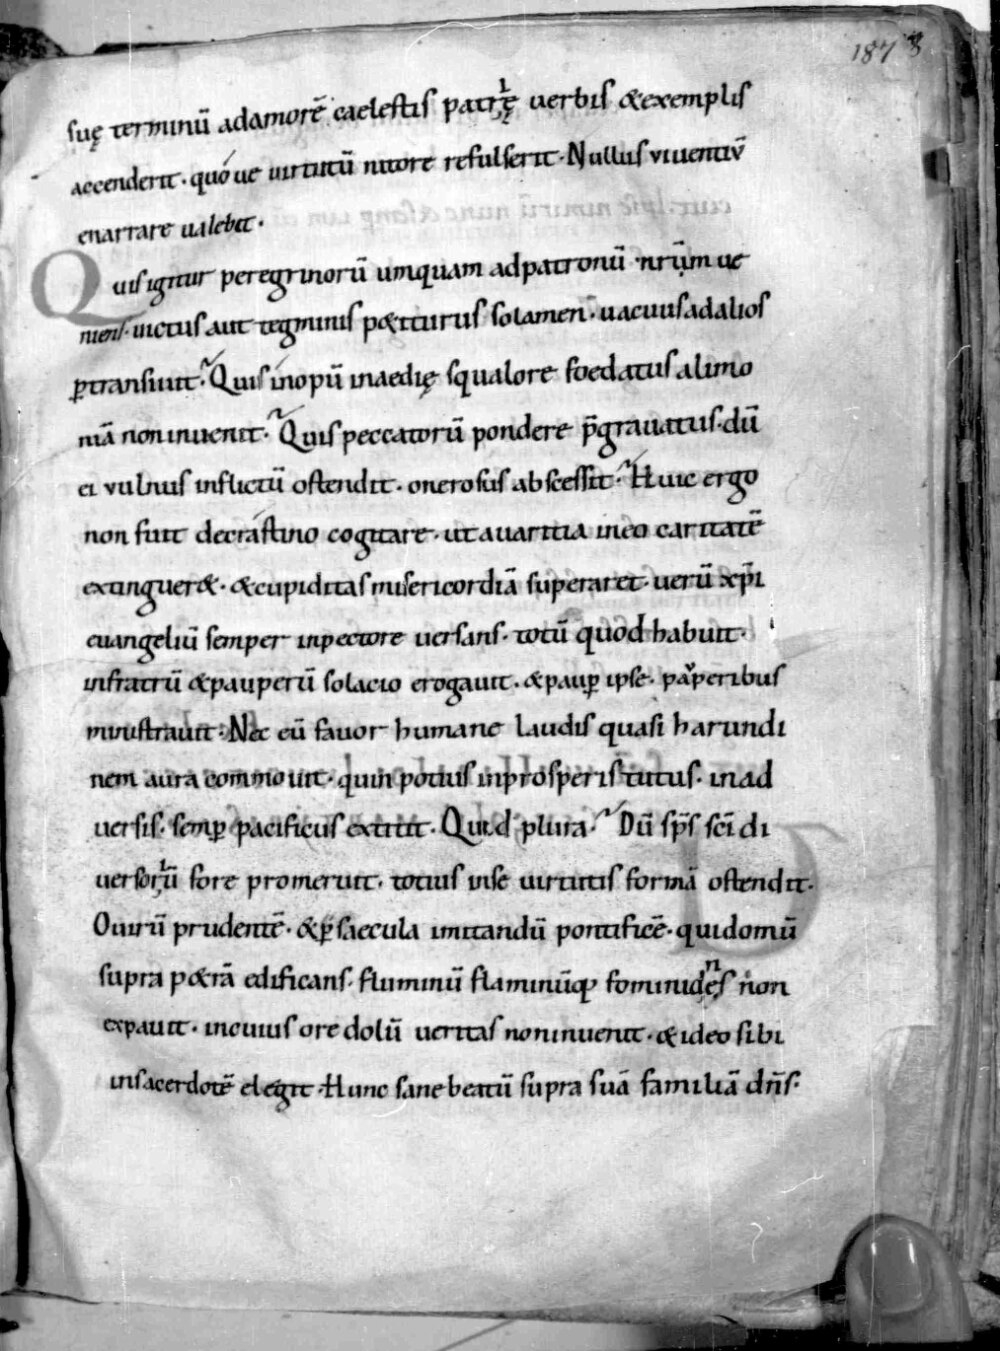 187 8
suę terminū adamorē caelestis patrę uerbis &exemplis
accenderit· quóue uirtutū nitore refulserit· Nullus uiuentiū
enarrare ualebit·
Quis igitur peregrinorū umquam adpatronū nr̄m ue
niens· uictus aut tegminis p&iturus solamen· uacuus adalios
ꝑtransiuit· Quis inopū inaedię squalore foedatus alimo
niā non inuenit· Quis peccatorū pondere p̄grauatus· dū
ei vulnus inflictū ostendit· onerosus abscessit· Huic ergo
non fuit decrástino cogitare· ut auaritia ineo caritatē
extinguer&· &cupiditas misericordiā superaret· uerū xp̄i
euangeliū semper inpectore uersans· totū quod habuit·
infratrū &pauperū solacio erogauit· &pauꝑ ipse· pauperibus
ministrauit· Nec eū fauor humane laudis quasi harundi
nem aura commouit· quin potius inprosperis tutus· inad
uersis· semꝑ pacificus extitit· Quid plura· Dū sp̄s sc̄i di
uersorū fore promeruit· totius inse uirtutis formā ostendit·
O uirū prudentē· &ꝑ saecula imitandū pontificē· qui domū
supra p&rā edificans· fluminū flaminūq; fominidęs non
expauit· incuius ore dolū ueritas non inuenit· & ideo sibi
insacerdotē elegit· Hunc sane beatū supra suā familiā dn̄s·